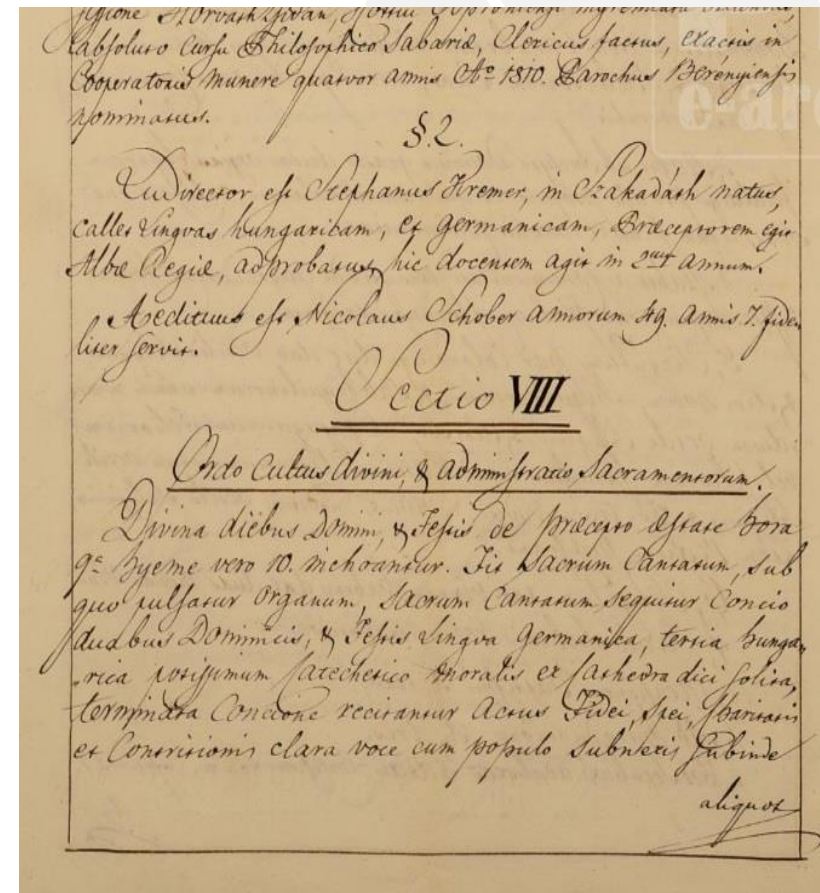 Horváth Zsidán, Cottui Soproniensi ingremiata
absoluto Cursu Philosophico Sabariæ, Clericus factus, exactis in
Cooperatoris munere quatvor annis Aº 1810. Parochus Berényiensis
nominatus.
§. 2.
Ludirector, est Stephanus Kremer, in Szakadáth natus,
callet Lingvas hungaricam, et germanicam, Præceptorem egit
Albæ Regiæ, adprobatus, hic docentem agit in 2dum annum.
Aedituus est Nicolaus Schober annorum 49. annis 7. fide-
liter servit.
Sectio VIII
Ordo Cultus divini, & administratio Sacramentorum.
Divina diëbus Domini, & Festis de præcepto Æstate hora
9ª hyeme vero 10. inchoantur. Fit Sacrum Cantatum, sub
quo pulsatur Organum, Sacrum Cantatum sequitur Concio
duabus Dominicis, & Festis Lingva Germanica, tertia hunga-
rica potissimum Catechetico moralis ex Cathedra dici solita,
terminata Concione recitantur Actus Fidei, Spei, Charitatis
et Contritionis clara voce cum populo subnexis subinde
aliquot